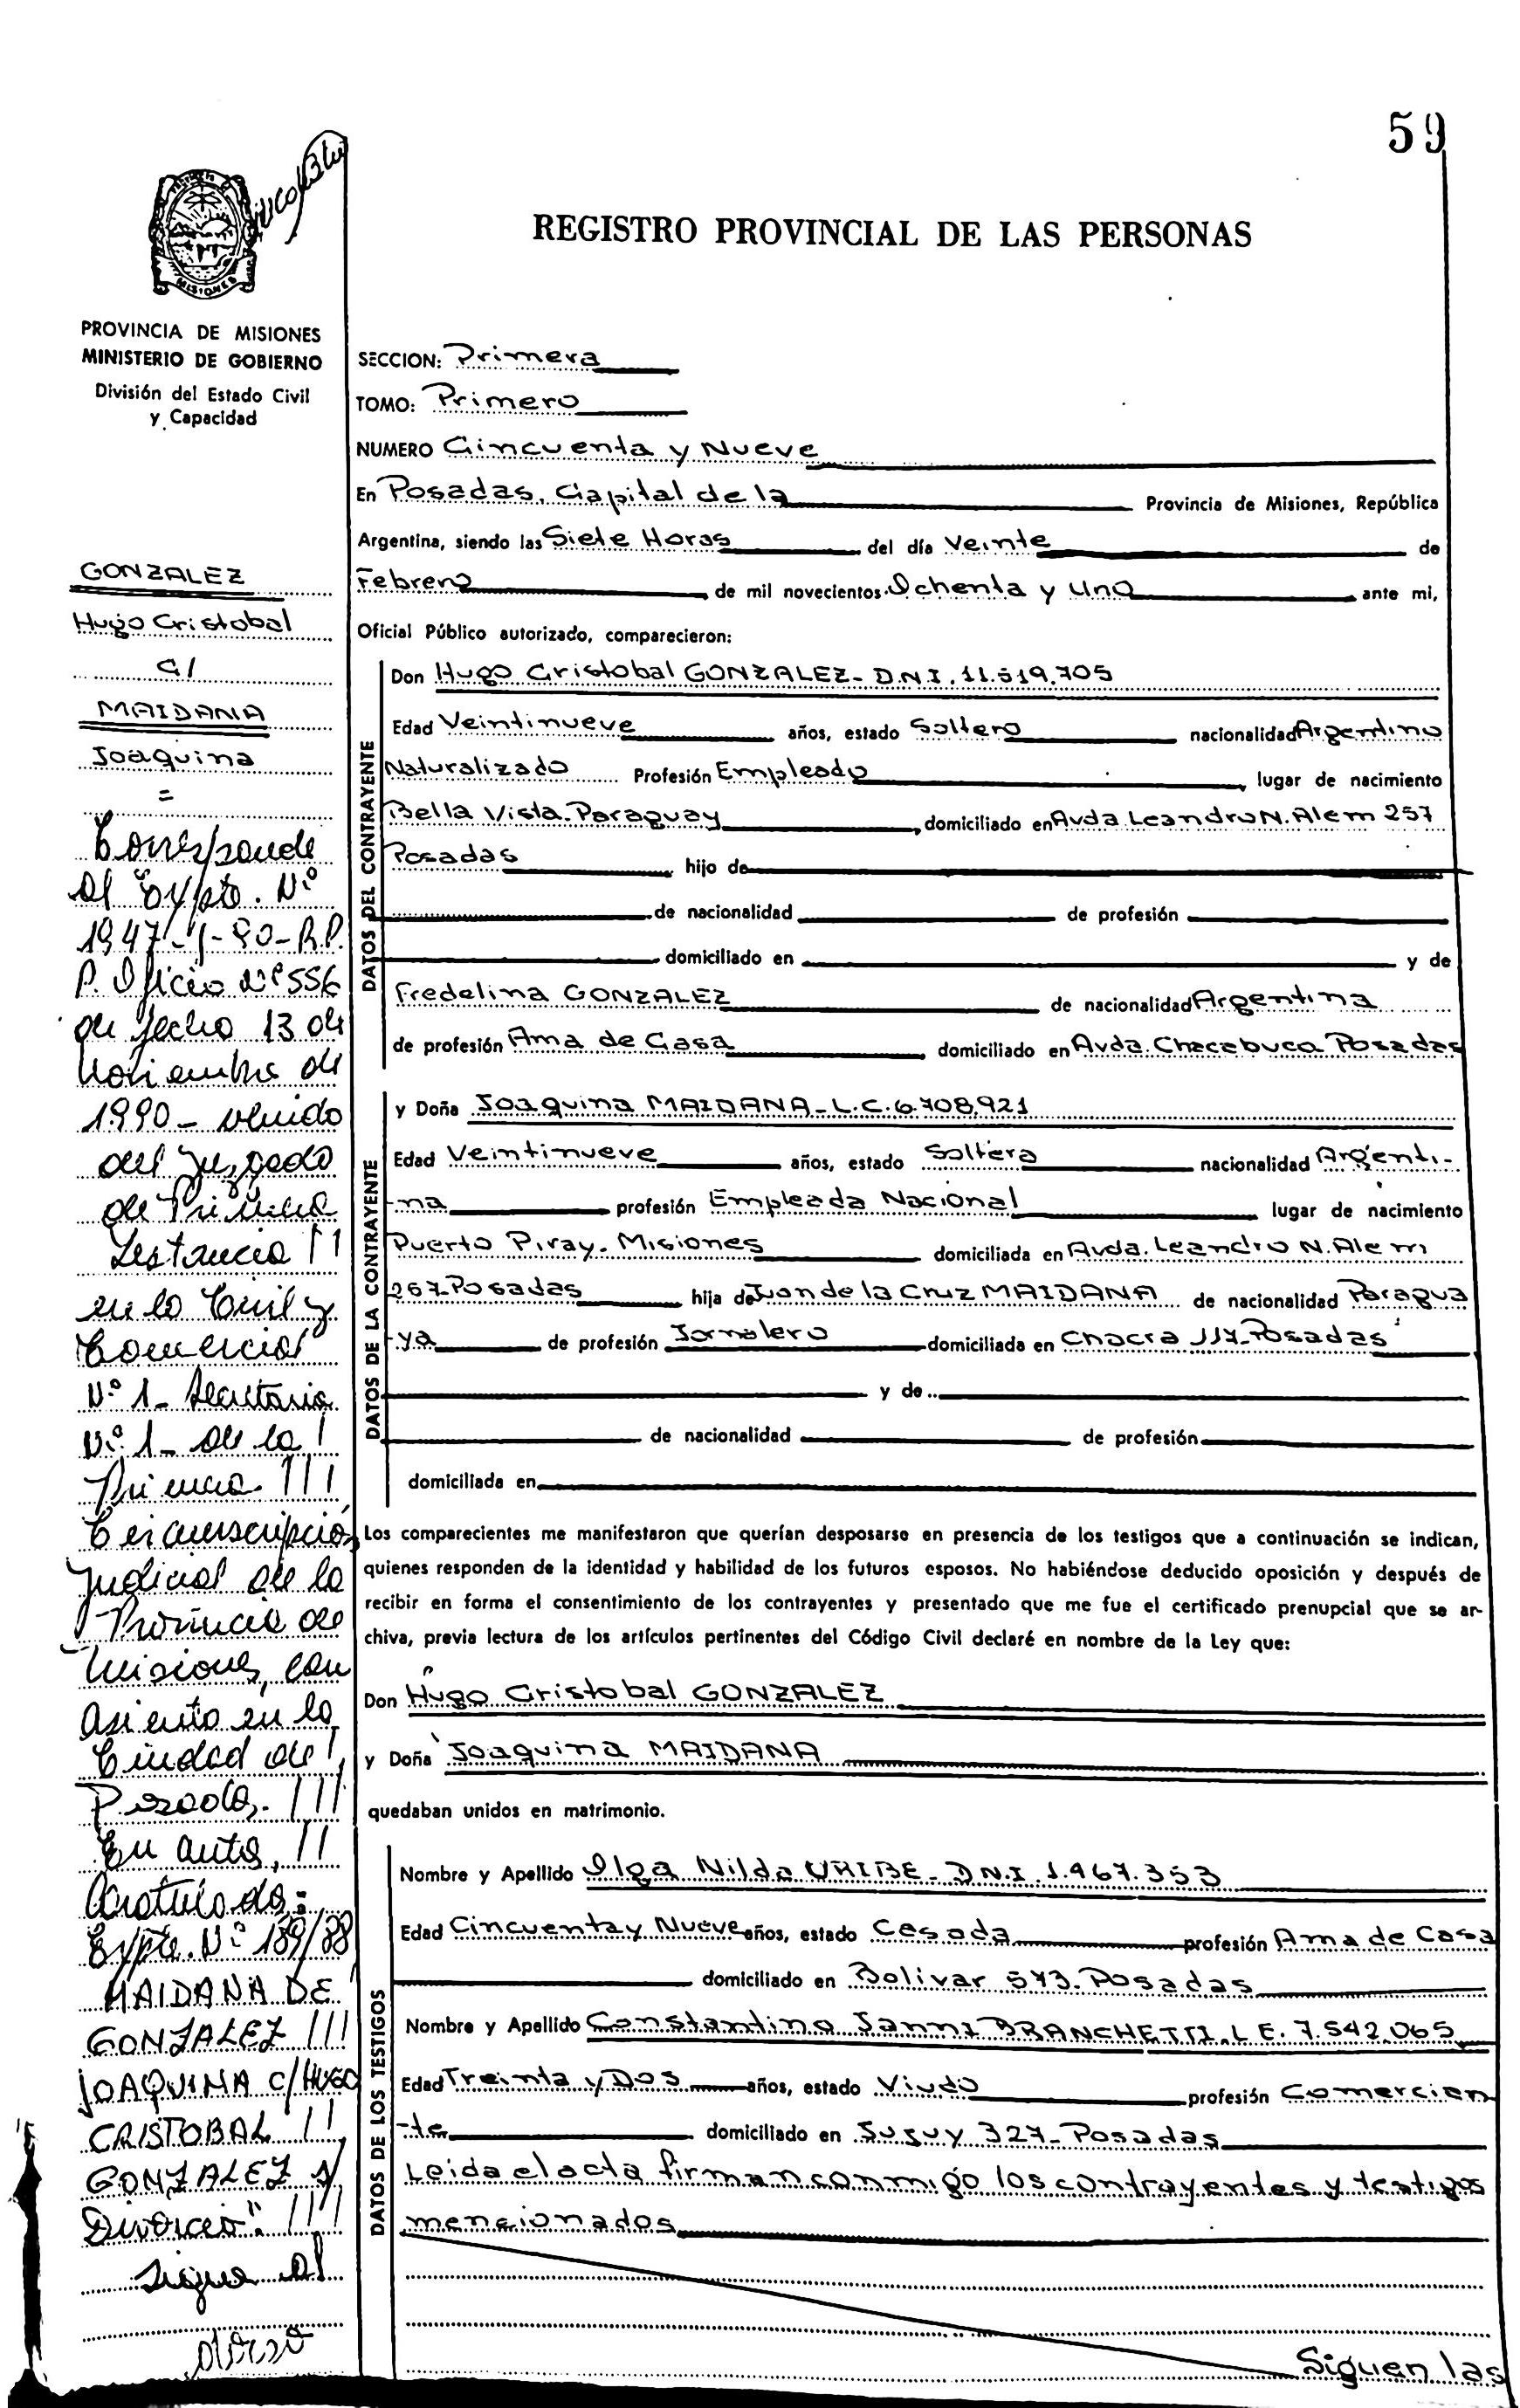 59
REGISTRO PROVINCIAL DE LAS PERSONAS
MISIONES
PROVINCIA DE MISIONES
MINISTERIO DE GOBIERNO
División del Estado Civil
y Capacidad
GONZALEZ
Hugo Cristobal
C/
MAIDANA
Joaquina
=
Corresponde
al Expte. Nº
1947-
P. Oficio Nº 556
de fecha 13 de
Noviembre de
1.990 - venido
del Juzgado
de Primera
Instancia //
en lo Civil y
Comercial
Nº 1 - Secretaria
Nº 1 - de la /
Primera ///
Circunscripción
Judicial de la
Provincia de
Misiones, con
asiento en la
Ciudad de /
Posadas. ///
En autos, //
Caratulado:
Expte. Nº 189/88
MAIDANA DE
GONZALEZ ///
JOAQUINA C/ HUGO
CRISTOBAL //
GONZALEZ S/
Divorcio". ///
Sigue al
dorso
SECCION: Primera
TOMO: Primero
NUMERO Cincuenta y Nueve
En Posadas, Capital de la Provincia de Misiones, República
Argentina, siendo las Siete Horas del día Veinte de
Febrero de mil novecientos Ochenta y Uno ante mi,
Oficial Público autorizado, comparecieron:
DATOS DEL CONTRAYENTE
Don Hugo Cristobal GONZALEZ - D.N.I. 11.519.705
Edad Veintinueve años, estado Soltero nacionalidad Argentino
Naturalizado Profesión Empleado, lugar de nacimiento
Bella Vista. Paraguay, domiciliado en Avda. Leandro N. Alem 257
Posadas hijo de
de nacionalidad de profesión
domiciliado en y de
Fredelina GONZALEZ de nacionalidad Argentina
de profesión Ama de Casa domiciliado en Avda. Chacabuco Posadas
DATOS DE LA CONTRAYENTE
y Doña Joaquina MAIDANA - L.C. 6.708.921
Edad Veintinueve años, estado Soltera nacionalidad Argenti-
-na profesión Empleada Nacional lugar de nacimiento
Puerto Piray - Misiones domiciliada en Avda. Leandro N. Alem
267-Posadas hija de Juan de la Cruz MAIDANA de nacionalidad Paragua
-ya de profesión Jornalero domiciliada en Chacra 117-Posadas
y de
de nacionalidad de profesión
domiciliada en
Los comparecientes me manifestaron que querían desposarse en presencia de los testigos que a continuación se indican,
quienes responden de la identidad y habilidad de los futuros esposos. No habiéndose deducido oposición y después de
recibir en forma el consentimiento de los contrayentes y presentado que me fue el certificado prenupcial que se ar-
chiva, previa lectura de los artículos pertinentes del Código Civil declaré en nombre de la Ley que:
Don Hugo Cristobal GONZALEZ
y Doña Joaquina MAIDANA
quedaban unidos en matrimonio.
DATOS DE LOS TESTIGOS
Nombre y Apellido Olga Nilda URIBE - D.N.I. 1.967.353
Edad Cincuenta y Nueve años, estado Casada profesión Ama de Casa
domiciliado en Bolivar 573-Posadas
Nombre y Apellido Constantino Janni BRANCHETTI. L E. 7.542.065
Edad Treinta y Dos años, estado Viudo profesión Comercian
-te domiciliado en Jujuy 327-Posadas
Leida el acta firman conmigo los contrayentes y testigos
mencionados
Siguen las